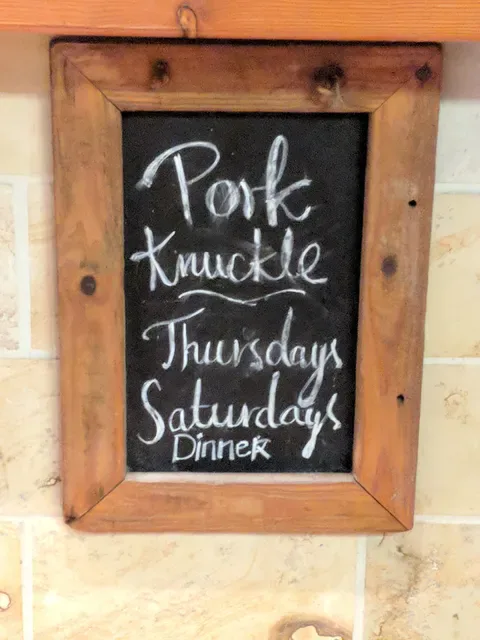 Pork
Knuckle
Thursdays
Saturdays
Dinner